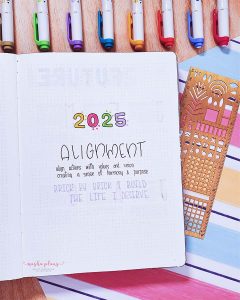 2025
ALIGNMENT
align actions with values and vision
creating a sense of harmony & purpose
BRICK BY BRICK I BUILD
THE LIFE I DESERVE
masha plans